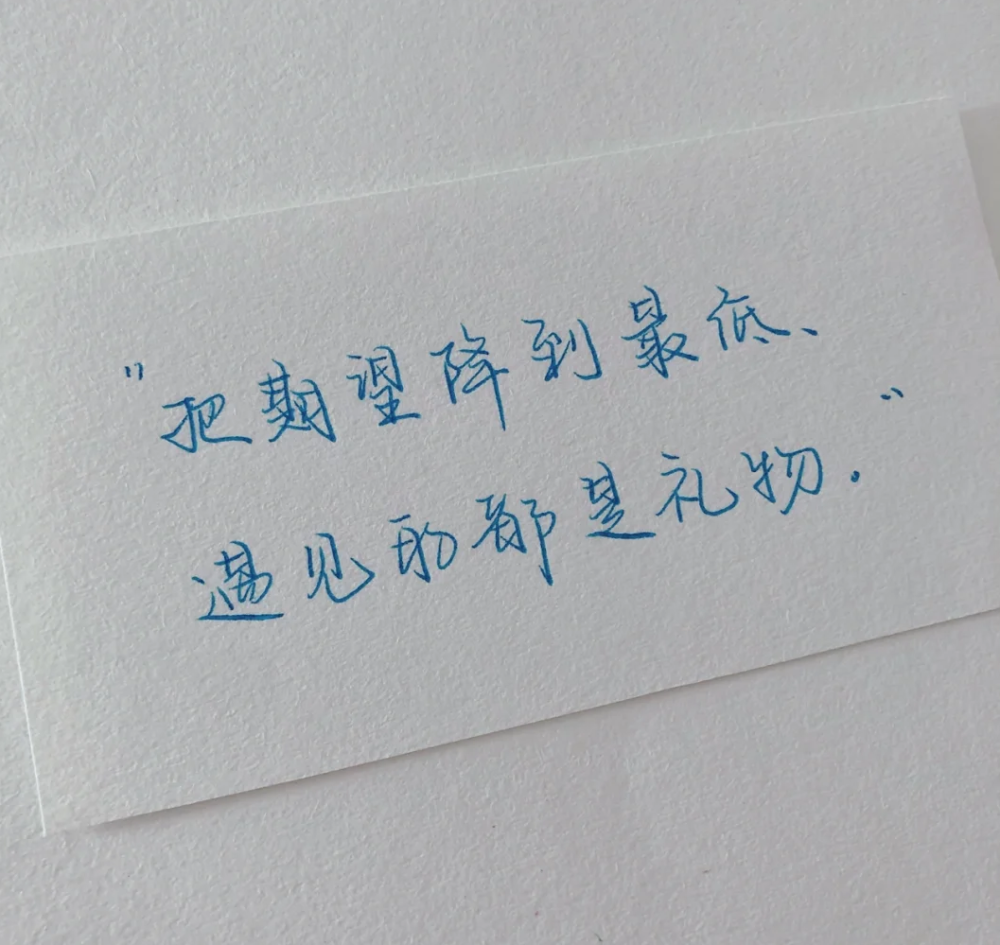 “把期望降到最低、
遇见的都是礼物.”